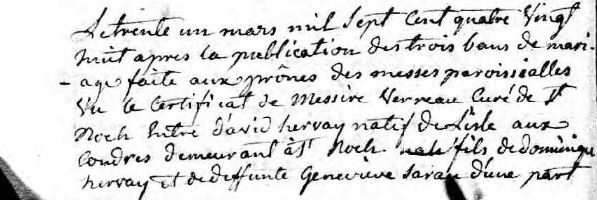 Le trente un mars mil sept cent quatre vingt
huit apres la publication des trois bans de mari-
age faite aux prônes des messes paroissialles
vu le certificat de Messire verreau Curé de St
Roch Entre david hervay natif de Lisle aux
Coudres demeurant à St Roch fils de dominique
hervay et de deffunte Geneviève Savar d'une part